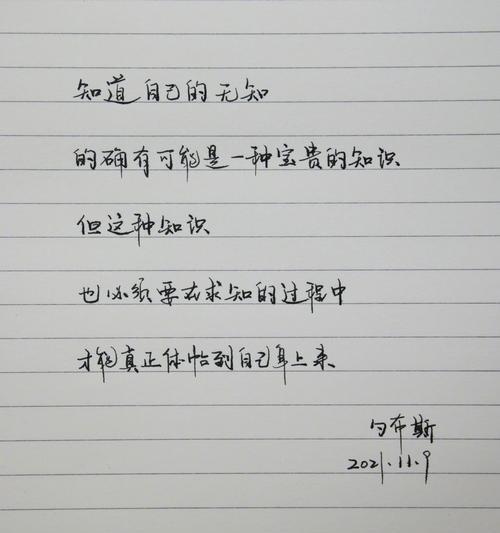 知道自己的无知
的确有可能是一种宝贵的知识
但这种知识
也必须要在求知的过程中
才能真正体帖到自己身上来
勻布斯
2021.11.9